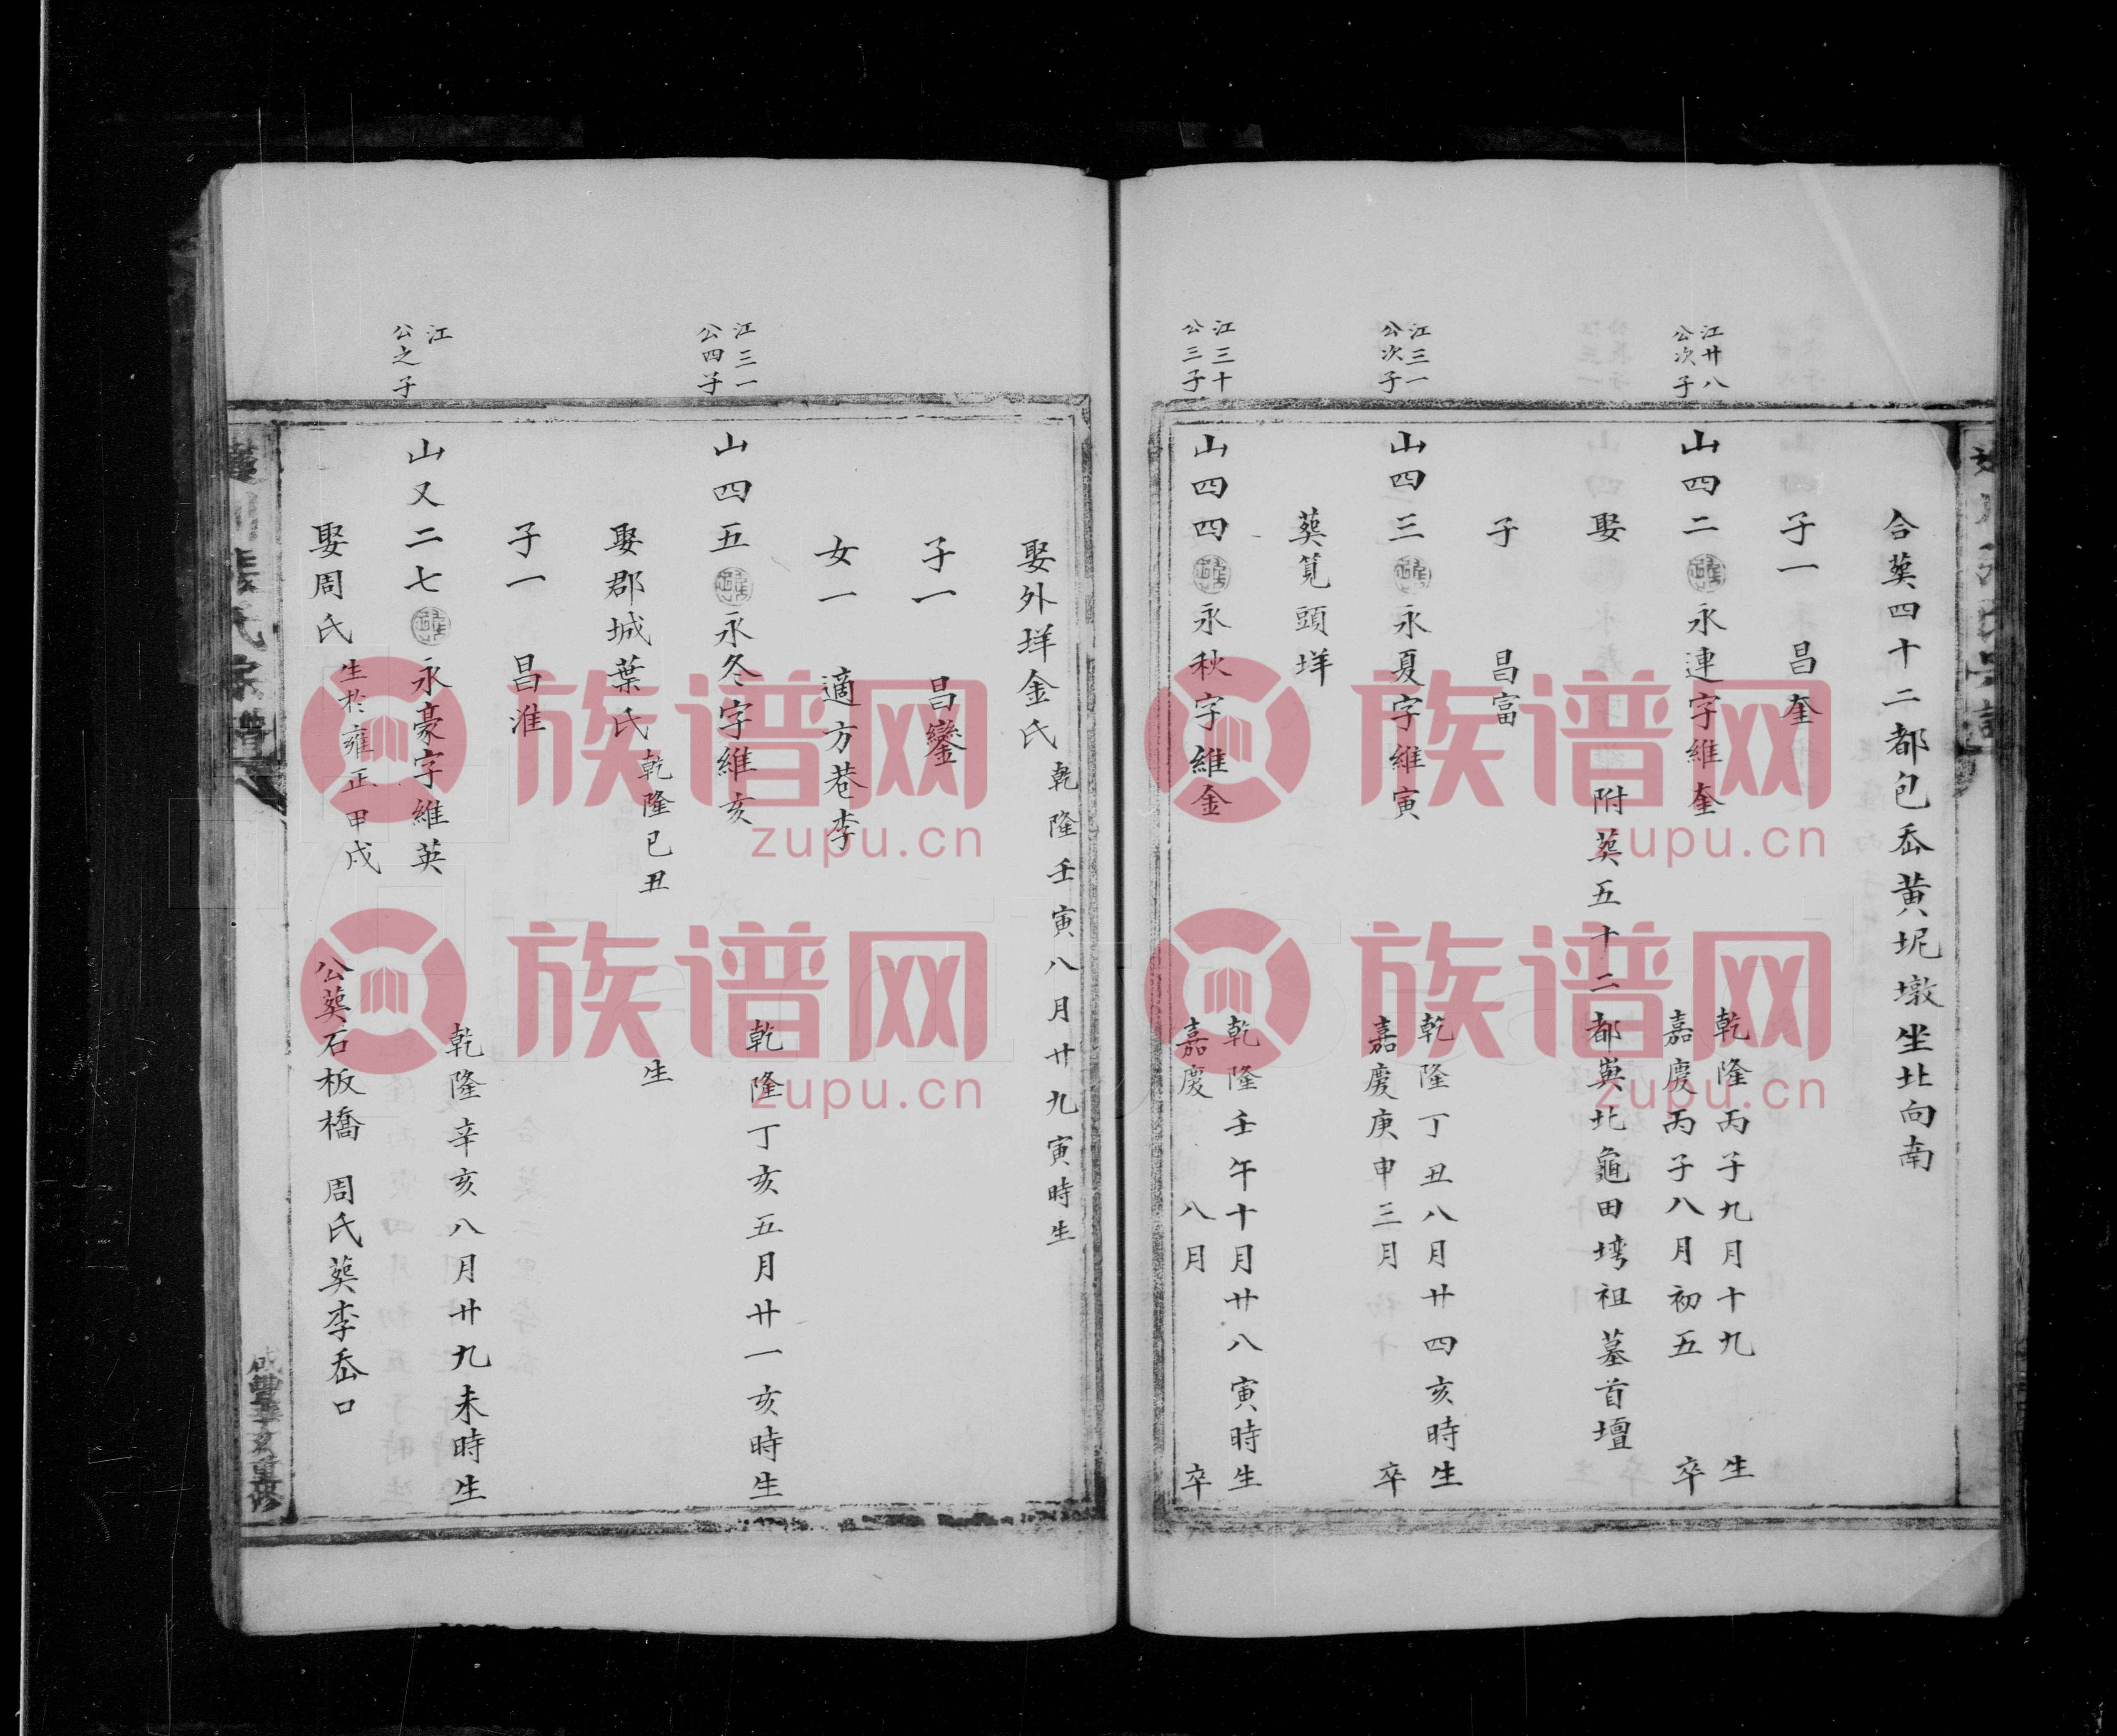 合葬四十二都包岙黄坭墩坐北向南
子一 昌奎
江廿八
公次子
山四二 永連字維奎
乾隆丙子九月十九 生
嘉慶丙子八月初五 卒
娶 附葬五十二都英北龜田垮祖墓首壇
子 昌富
江三一
公次子
山四三 永夏字維寅
乾隆丁丑八月廿四亥時生
嘉慶庚申三月 卒
葬筧頭垟
江三十
公三子
山四四 永秋字維金
乾隆壬午十月廿八寅時生
嘉慶 八月 卒
娶外垟金氏 乾隆壬寅八月廿九寅時生
子一 昌鑾
女一 適方巷李
江三一
公四子
山四五 永冬字維亥
乾隆丁亥五月廿一亥時生
娶郡城葉氏 乾隆已丑 生
子一 昌淮
江
公之子
山又二七 永豪字維英
乾隆辛亥八月廿九未時生
娶周氏 生於雍正甲戌 公葬石板橋 周氏葬李岙口
氏宗譜
咸豐 重修
族谱网
zupu.cn
族谱网
zupu.cn
族谱网
zupu.cn
族谱网
zupu.cn